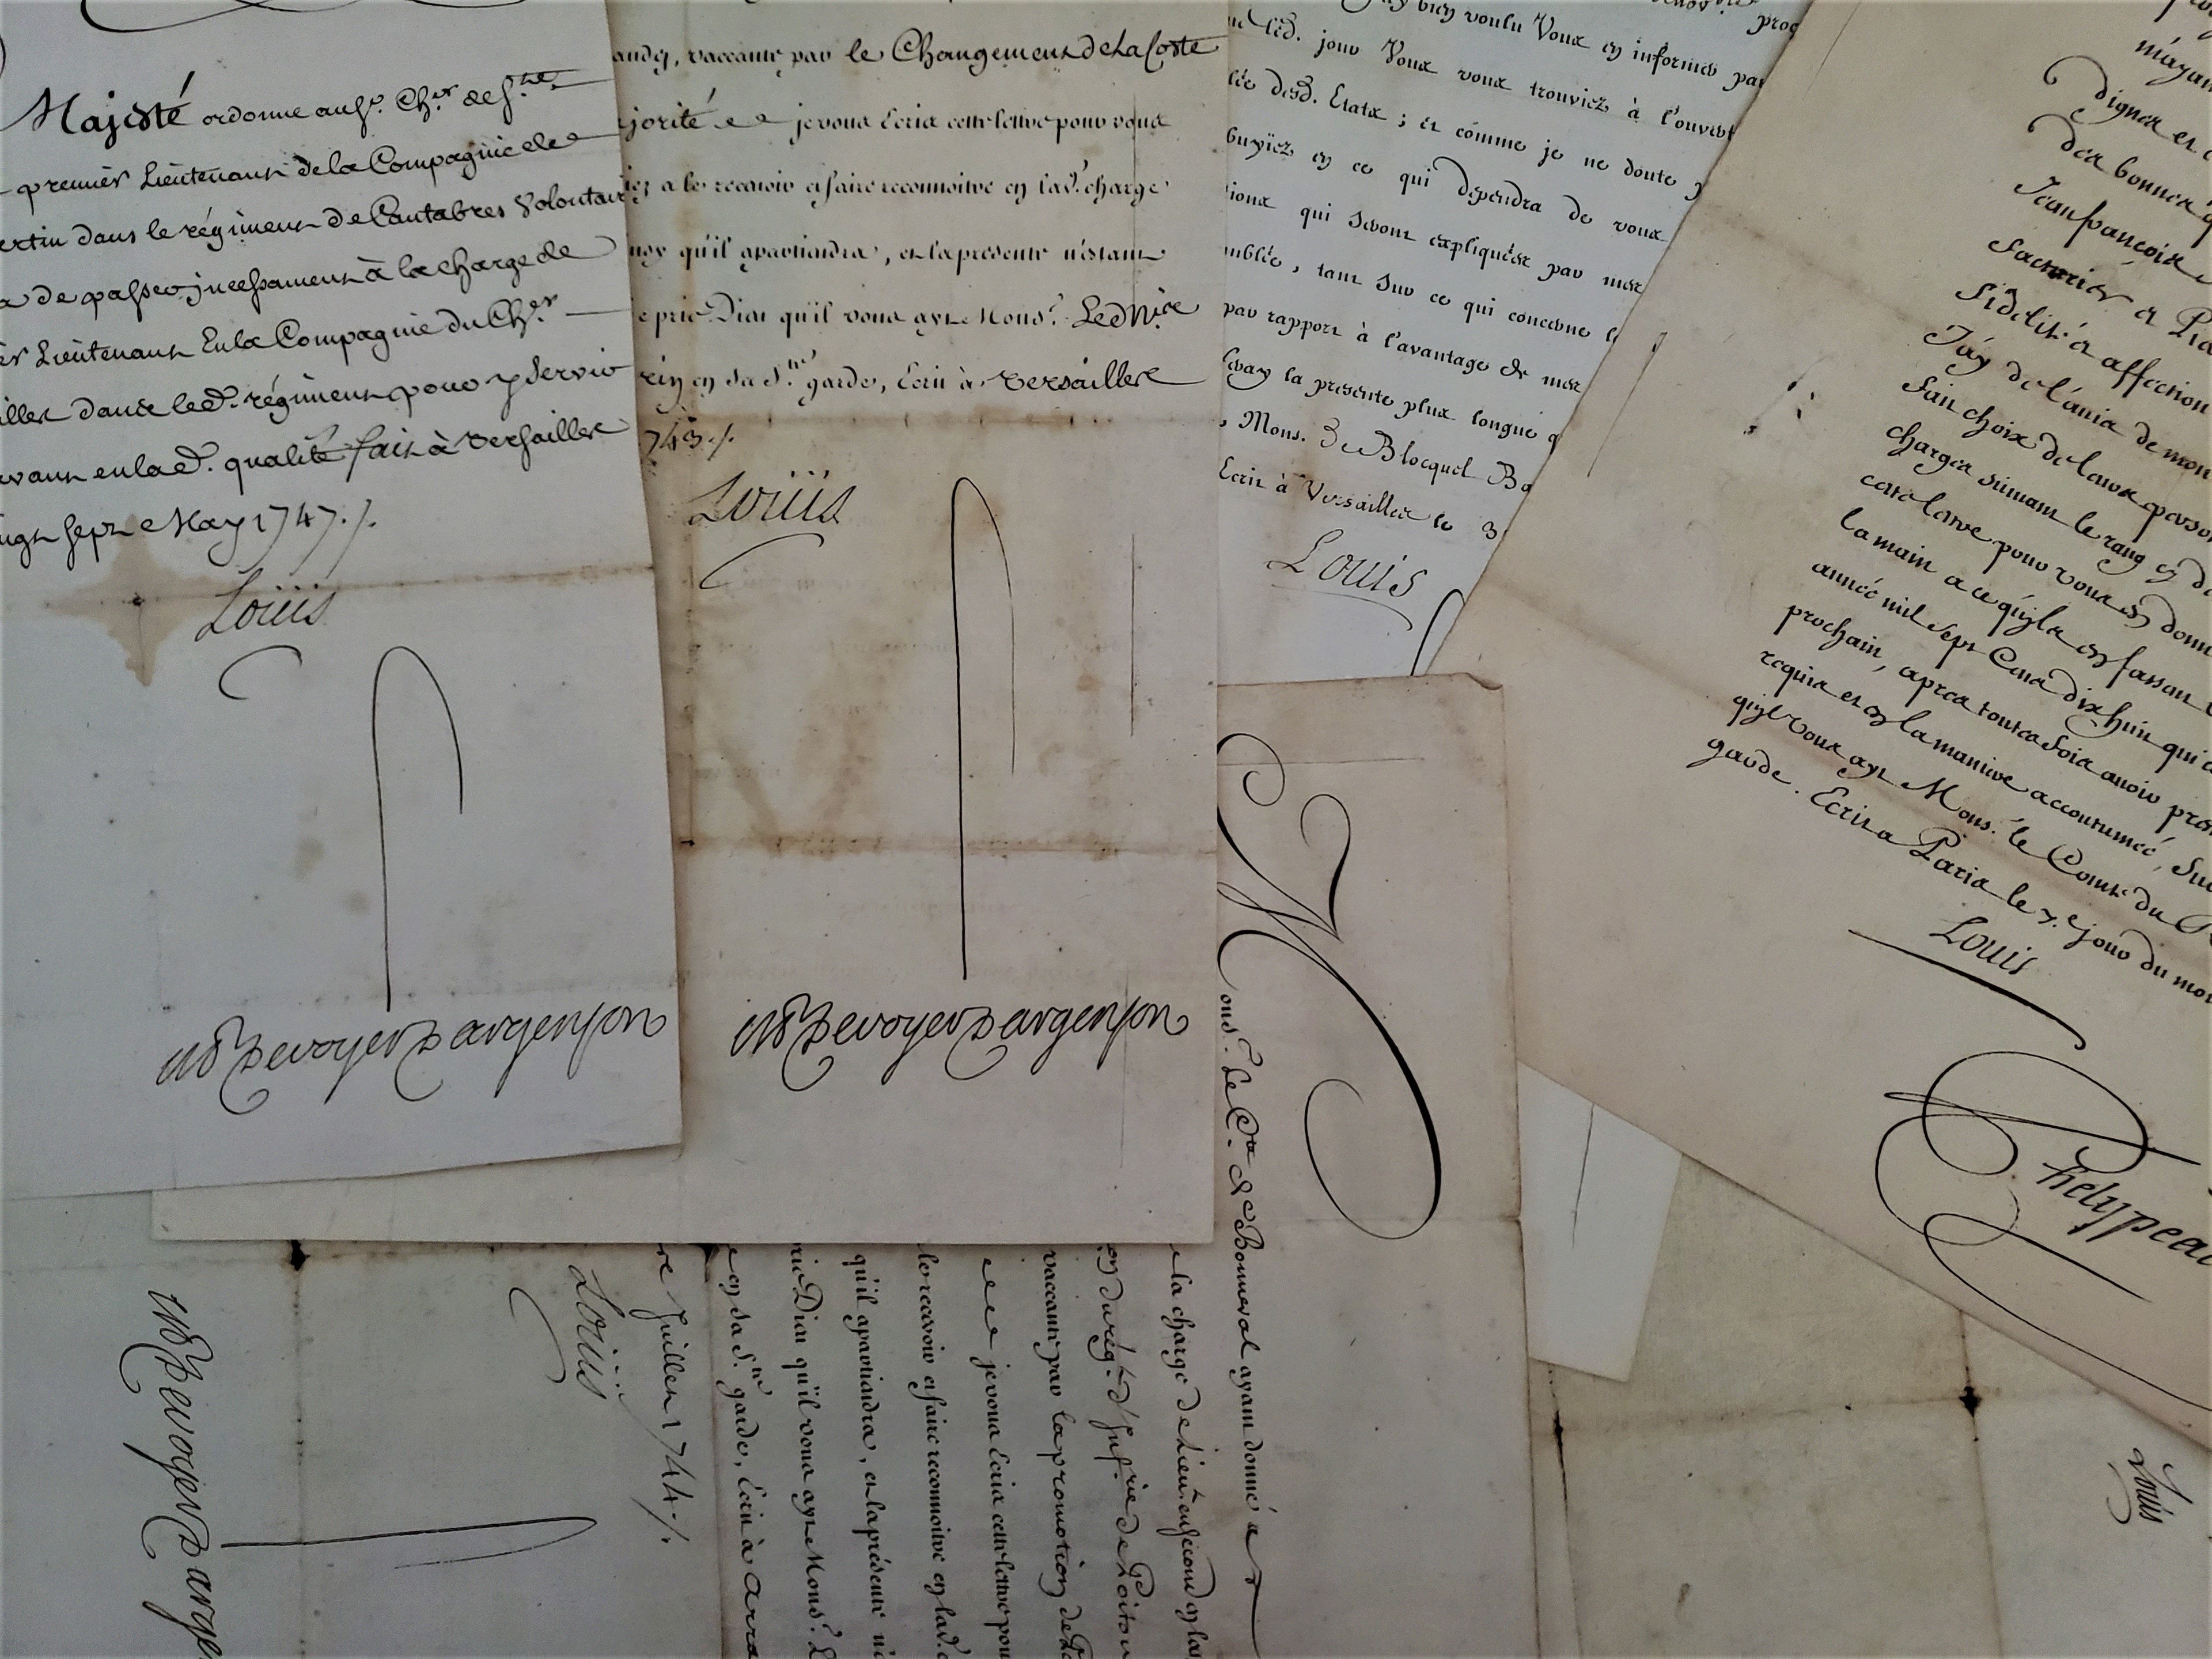 Majesté ordonne au Sr. Cher. de Ste.
premier Lieutenant de la Compagnie de
ertin dans le régiment de Cantabres Volontair
a de passer incessament à la charge de
er Lieutenant En la Compagnie du Cher.
illes dans led. régiment pour y servir
avant en lad. qualité fait à Versailles
ingt sept May 1747./.
Loüis
MPDevoyerDargenson
andy, vaccante par le Changement de La Coste
jorité je vous Ecris cette lettre pour vous
iez a le recevoir et faire reconnoitre en lad. charge
nex qu'il apartiendra, et la presente n'estant
e prie Dieu qu'il vous ayt Mons.r Led
rin en sa Ste. garde, Ecrit à Versailles
743./.
Loüis
MPDevoyerDargenson
bien voulu Vous en informer par
led. jour Vous vous trouviez à l'ouvert
lée desd. Etats; et comme je ne doute p
buyiez en ce qui dependra de vous
ions qui seront expliquées par mes
mblée, tant sur ce qui concerne l
par rapport à l'avantage de mes
feray la presente plus longue q
, Mons. De Blocquel Ba
Ecrit à Versailles le 3
Louis
dignes et
des bonnes q
Jean françois
Sacerier et Pia
fidelité et affection
J'ay de l'avis de mon
fait choix de leurs perso
charges suivant le rang et
cette lettre pour vous donn
la main a ce qu'ils en fassent
année mil sept Cens dix huit qui
prochain, apres toutesfois avoir pres
requis et en la maniere accoutumée, Sur
qu'il vous ayt Mons. le Comte du
garde. Ecrit a Paris le 7.e jour du moi
Louis
Phelypeau
ons.r Le Cte. de Bonneval ayant donné a
la charge de Lieut. en second en la
on du régt. d'Infrie. de Poitou
vaccante par la promotion de
je vous Ecris cette lettre pou
le recevoir et faire reconnoitre en lad.
qu'il apartiendra, et la présente n'é
rie Dieu qu'il vous ayt Mons.r L
en sa Ste. garde, Ecrit à Arra
re Juillet 1744./.
Loüis
MPDevoyerDarge
Louis